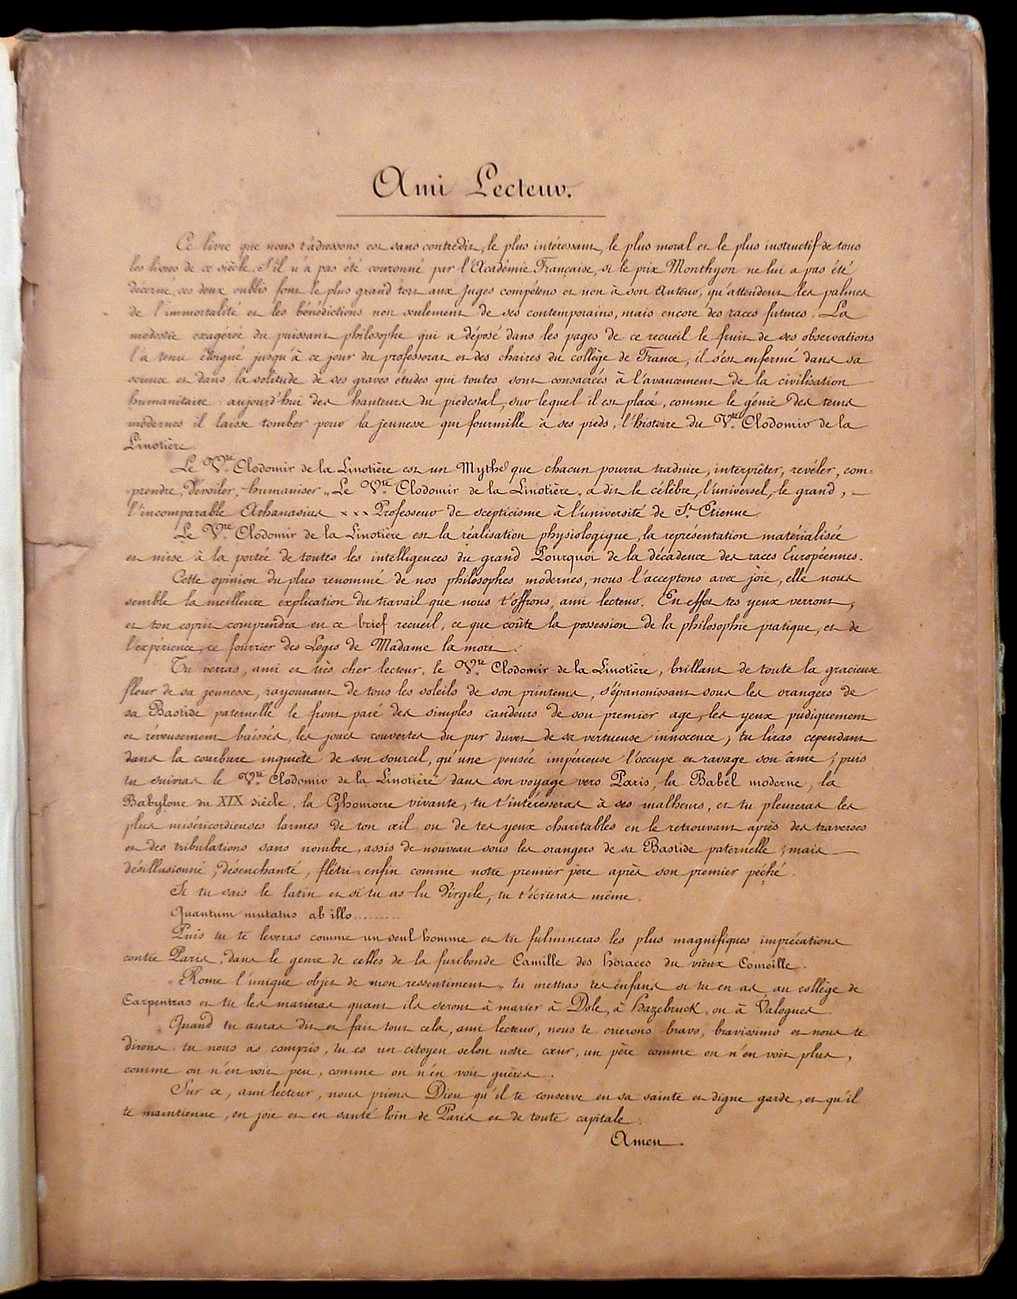 Ami Lecteur.
Ce livre que nous t'adressons est sans contredit, le plus intéressant, le plus moral et le plus instructif de tous
les livres de ce siècle. S'il n'a pas été couronné par l'Académie Française, si le prix Monthyon ne lui a pas été
décerné, ces deux oublis font le plus grand tort aux Juges compétens et non à son Auteur, qu'attendent les palmes
de l'immortalité et les bénédictions non seulement de ses contemporains, mais encore des races futures. La
modestie exagérée du puissant philosophe qui a déposé dans les pages de ce recueil le fruit de ses observations
l'a tenu éloigné jusqu'à ce jour du professorat et des chaires du collège de France, il s'est enfermé dans sa
science et dans la solitude de ses graves études qui toutes sont consacrées à l'avancement de la civilisation
humanitaire : aujourd'hui des hauteurs du piedestal, sur lequel il est placé, comme le génie des tems
modernes il laisse tomber pour la jeunesse qui fourmille à ses pieds, l'histoire du Vte. Clodomir de la
Linotière.
Le Vte. Clodomir de la Linotière est un Mythe que chacun pourra traduire, interprèter, revéler, com=
prendre, dévoiler, humaniser „ Le Vte. Clodomir de la Linotière, a dit le célèbre, l'universel, le grand, —
l'incomparable Athanasius xxx Professeur de scepticisme à l'université de St. Etienne.
Le Vte. Clodomir de la Linotière est la réalisation physiologique, la représentation matérialisée
et mise à la portée de toutes les intelligences du grand Pourquoi de la décadence des races Européennes.
Cette opinion du plus renommé de nos philosophes modernes, nous l'acceptons avec joie, elle nous
semble la meilleure explication du travail que nous t'offrons, ami lecteur. En effet tes yeux verront,
et ton esprit comprendra en ce brief recueil, ce que coûte la possession de la philosophie pratique, et de
l'expérience, ce fourrier des Logis de Madame la mort.
Tu verras, ami et très cher lecteur, le Vte. Clodomir de la Linotière, brillant de toute la gracieuse
fleur de sa jeunesse, rayonnant de tous les soleils de son printems, s'épanouissant sous les orangers de
sa Bastide paternelle le front paré des simples candeurs de son premier age, les yeux pudiquement
et reveusement baissés, les joues couvertes du pur duvet de sa vertueuse innocence ; tu liras cependant
dans la courbure inquiète de son sourcil, qu'une pensée impérieuse l'occupe et ravage son âme ; puis
tu suivras le Vte. Clodomir de la Linotière dans son voyage vers Paris, la Babël moderne, la
Babylone du XIX siècle, la Ghomorre vivante, tu t'intéresseras à ses malheurs, et tu pleureras les
plus miséricordieuses larmes de ton œil ou de tes yeux charitables en le retrouvant après des traverses
et des tribulations sans nombre, assis de nouveau sous les orangers de sa Bastide paternelle ; mais —
désillusionné, désenchanté, flétri enfin comme notre premier père après son premier péché.
Si tu sais le latin et si tu as lu Virgile, tu t'écrieras même.
Quantum mutatus ab illo.........
Puis tu te leveras comme un seul homme et tu fulmineras les plus magnifiques imprécations
contre Paris, dans le genre de celles de la furibonde Camille des horaces du vieux Corneille.
„ Rome l'unique objet de mon ressentiment „ tu mettras tes enfans si tu en as au collège de
Carpentras et tu les marieras quant ils seront à marier à Dôle, à Hazebruck, ou à Valognes.
Quand tu auras dit et fait tout cela, ami lecteur, nous te crierons bravo, bravissimo et nous te
dirons : tu nous as compris, tu es un citoyen selon notre cœur, un père comme on n'en voit plus,
comme on n'en voit peu, comme on n'en voit guères.
Sur ce, ami lecteur, nous prions Dieu qu'il te conserve en sa sainte et digne garde, et qu'il
te maintienne, en joie et en santé loin de Paris et de toute capitale.
Amen.